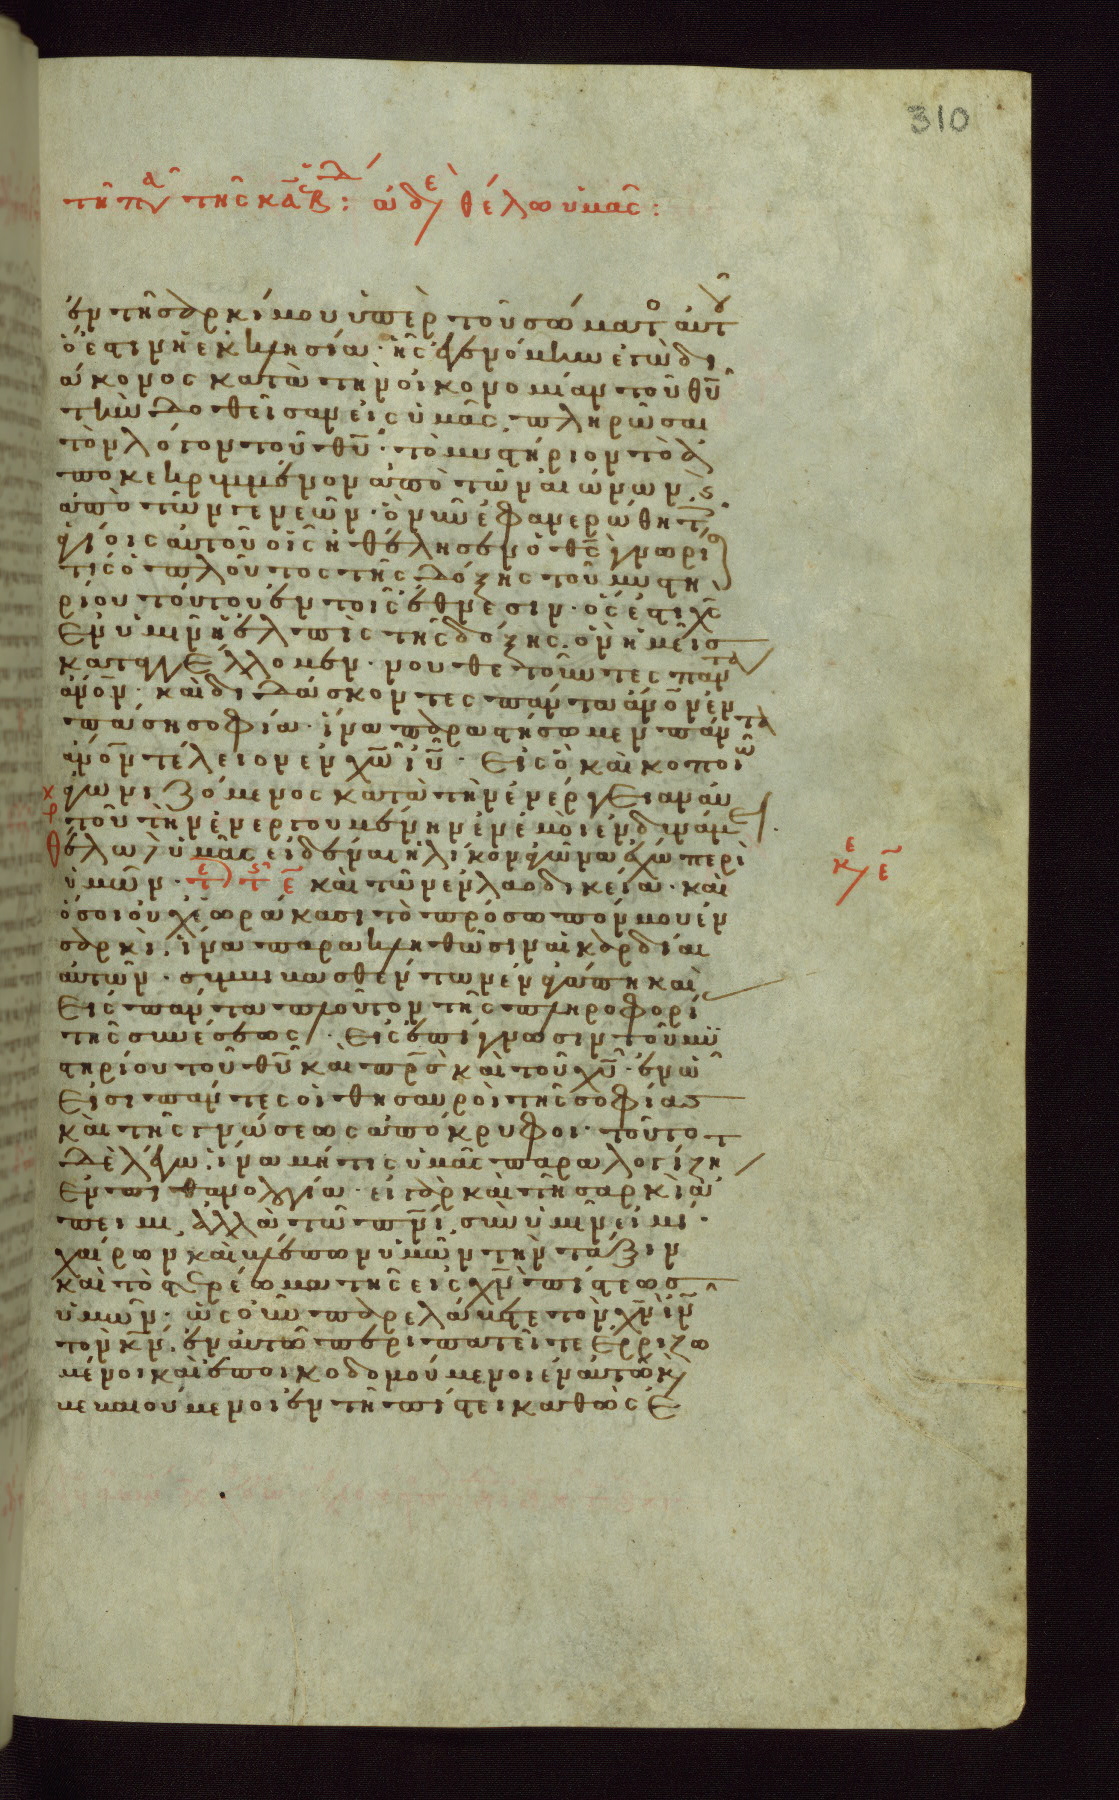 310
τῇ π̅ τῆς κ̅α̅ β: ἀδ ε θέλω ὑμᾶς:
ἐν τῇ σαρκί μου ὑπὲρ τοῦ σώματο αὐτοῦ
ὅ ἐστιν ἡ ἐκκλησία· ἧς ἐγενόμην ἐγὼ δι
άκονος κατὰ τὴν οἰκονομίαν τοῦ θ̅υ̅
τὴν δοθεῖσαν εἰς ὑμᾶς, πληρῶσαι
τὸν λόγον τοῦ θ̅υ̅· τὸ μυστήριον τὸ ἀ
ποκεκρυμμένον ἀπὸ τῶν αἰώνων, ς
ἀπὸ τῶν γενεῶν· ὃ νυνὶ ἐφανερώθη τ
ἁγίοις αὐτοῦ οἷς ἠθέλησεν ὁ θ̅ς̅ γνωρί
τίς ὁ πλοῦτος τῆς δόξης τοῦ μυστη
ρίου τούτου ἐν τοῖς ἔθνεσιν· ὅς ἐστι χ̅ς̅
ἐν ὑμῖν ἡ ἐλπὶς τῆς δόξης, ὃν ἡμεῖς
καταγγέλλομεν· νουθετοῦντες παντα
α̅ν̅ο̅ν̅· καὶ διδάσκοντες πάντα α̅ν̅ο̅ν̅ ἐν
πάσῃ σοφίᾳ· ἵνα παραστήσωμεν πάντα
α̅ν̅ο̅ν̅ τέλειον ἐν χ̅ω̅ ι̅υ̅· εἰς ὃ καὶ κοπιῶ
ἀγωνιζόμενος κατὰ τὴν ἐνέργειαν αὐ
τοῦ τὴν ἐνεργουμένην ἐν ἐμοὶ ἐν δυνάμει
θέλω ὑμᾶς εἰδέναι ἡλίκον ἀγῶνα ἔχω περὶ
κ ε ε̅
ὑμῶν· καὶ τῶν ἐν λαοδικείᾳ· καὶ
ὅσοι οὐχ ἑωράκασι τὸ πρόσωπόν μου ἐν
σαρκὶ, ἵνα παρακληθῶσιν αἱ καρδίαι
αὐτῶν· συμβιβασθέντων ἐν ἀγάπῃ καὶ
εἰς πάντα πλοῦτον τῆς πληροφορί
τῆς συνέσεως· εἰς ἐπίγνωσιν τοῦ μυ
στηρίου τοῦ θ̅υ̅ καὶ π̅ρ̅ς̅ καὶ τοῦ χ̅υ̅· ἐν ᾧ
εἰσι πάντες οἱ θησαυροὶ τῆς σοφίας
καὶ τῆς γνώσεως ἀπόκρυφοι· τοῦτο
δὲ λέγω, ἵνα μή τις ὑμᾶς παραλογίζη
ἐν πιθανολογίᾳ· εἰ γὰρ καὶ τῇ σαρκὶ ἄ
πειμι, ἀλλὰ τῷ π̅ν̅ι̅ σὺν ὑμῖν εἰμί·
χαίρων καὶ βλέπων ὑμῶν τὴν τάξιν
καὶ τὸ στερέωμα τῆς εἰς χ̅ν̅ πίστεως
ὑμῶν· ὡς οὖν παρελάβετε τὸν χ̅ν̅ ι̅ν̅
τὸν κ̅ν̅, ἐν αὐτῷ περιπατεῖτε ἐρριζω
μένοι καὶ ἐποικοδομούμενοι ἐν αὐτῷ κ
βεβαιούμενοι ἐν τῇ πίστει καθὼς ἐ